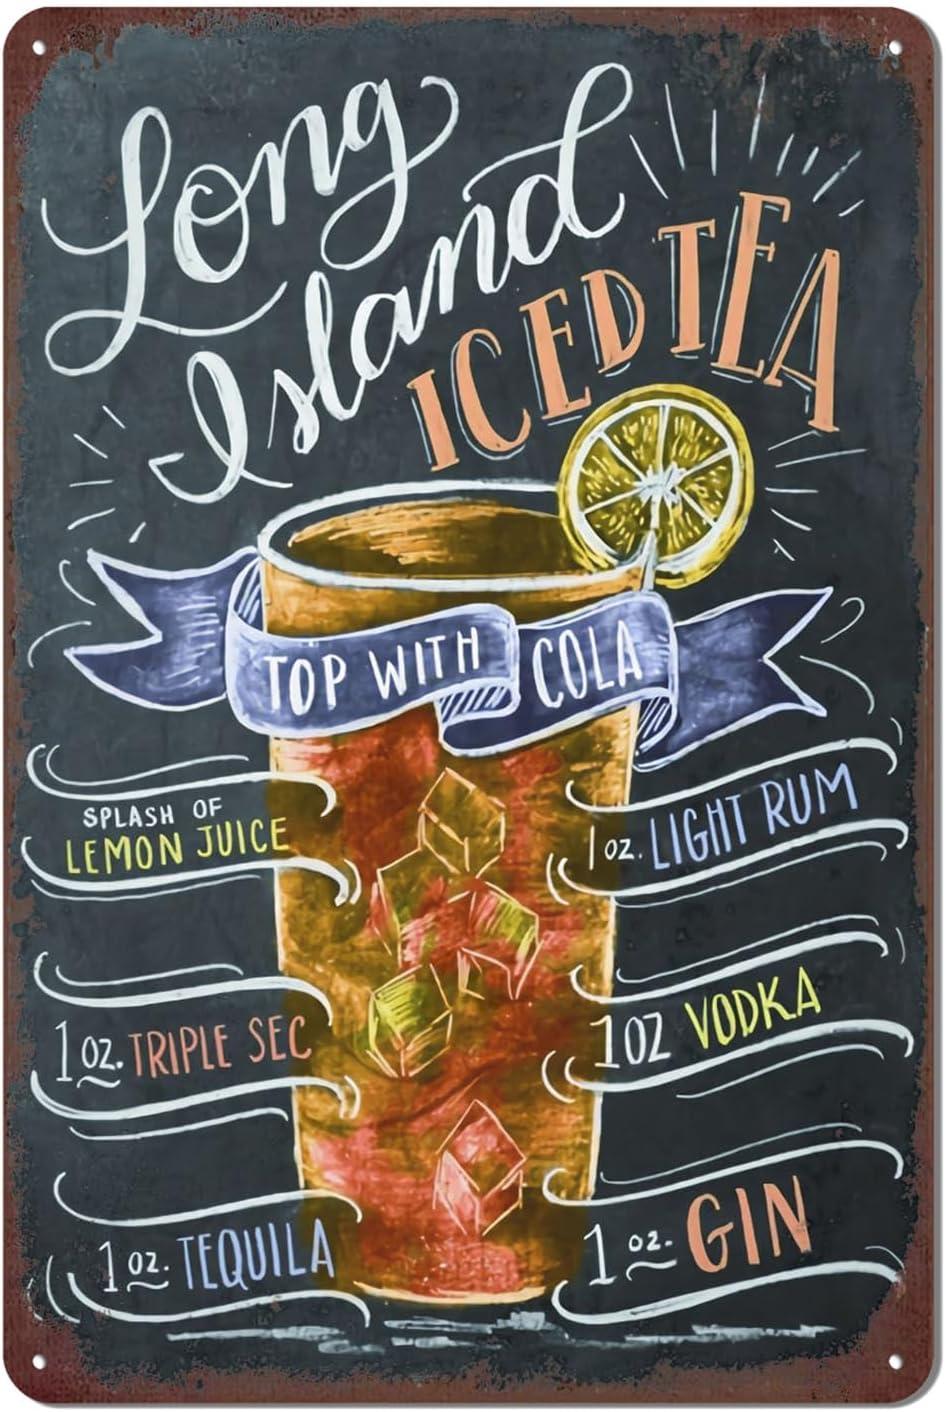 Long
Island
ICED TEA
TOP WITH COLA
SPLASH OF
LEMON JUICE
1 oz. LIGHT RUM
1 oz. TRIPLE SEC
1 OZ VODKA
1 oz. TEQUILA
1 oz. GIN